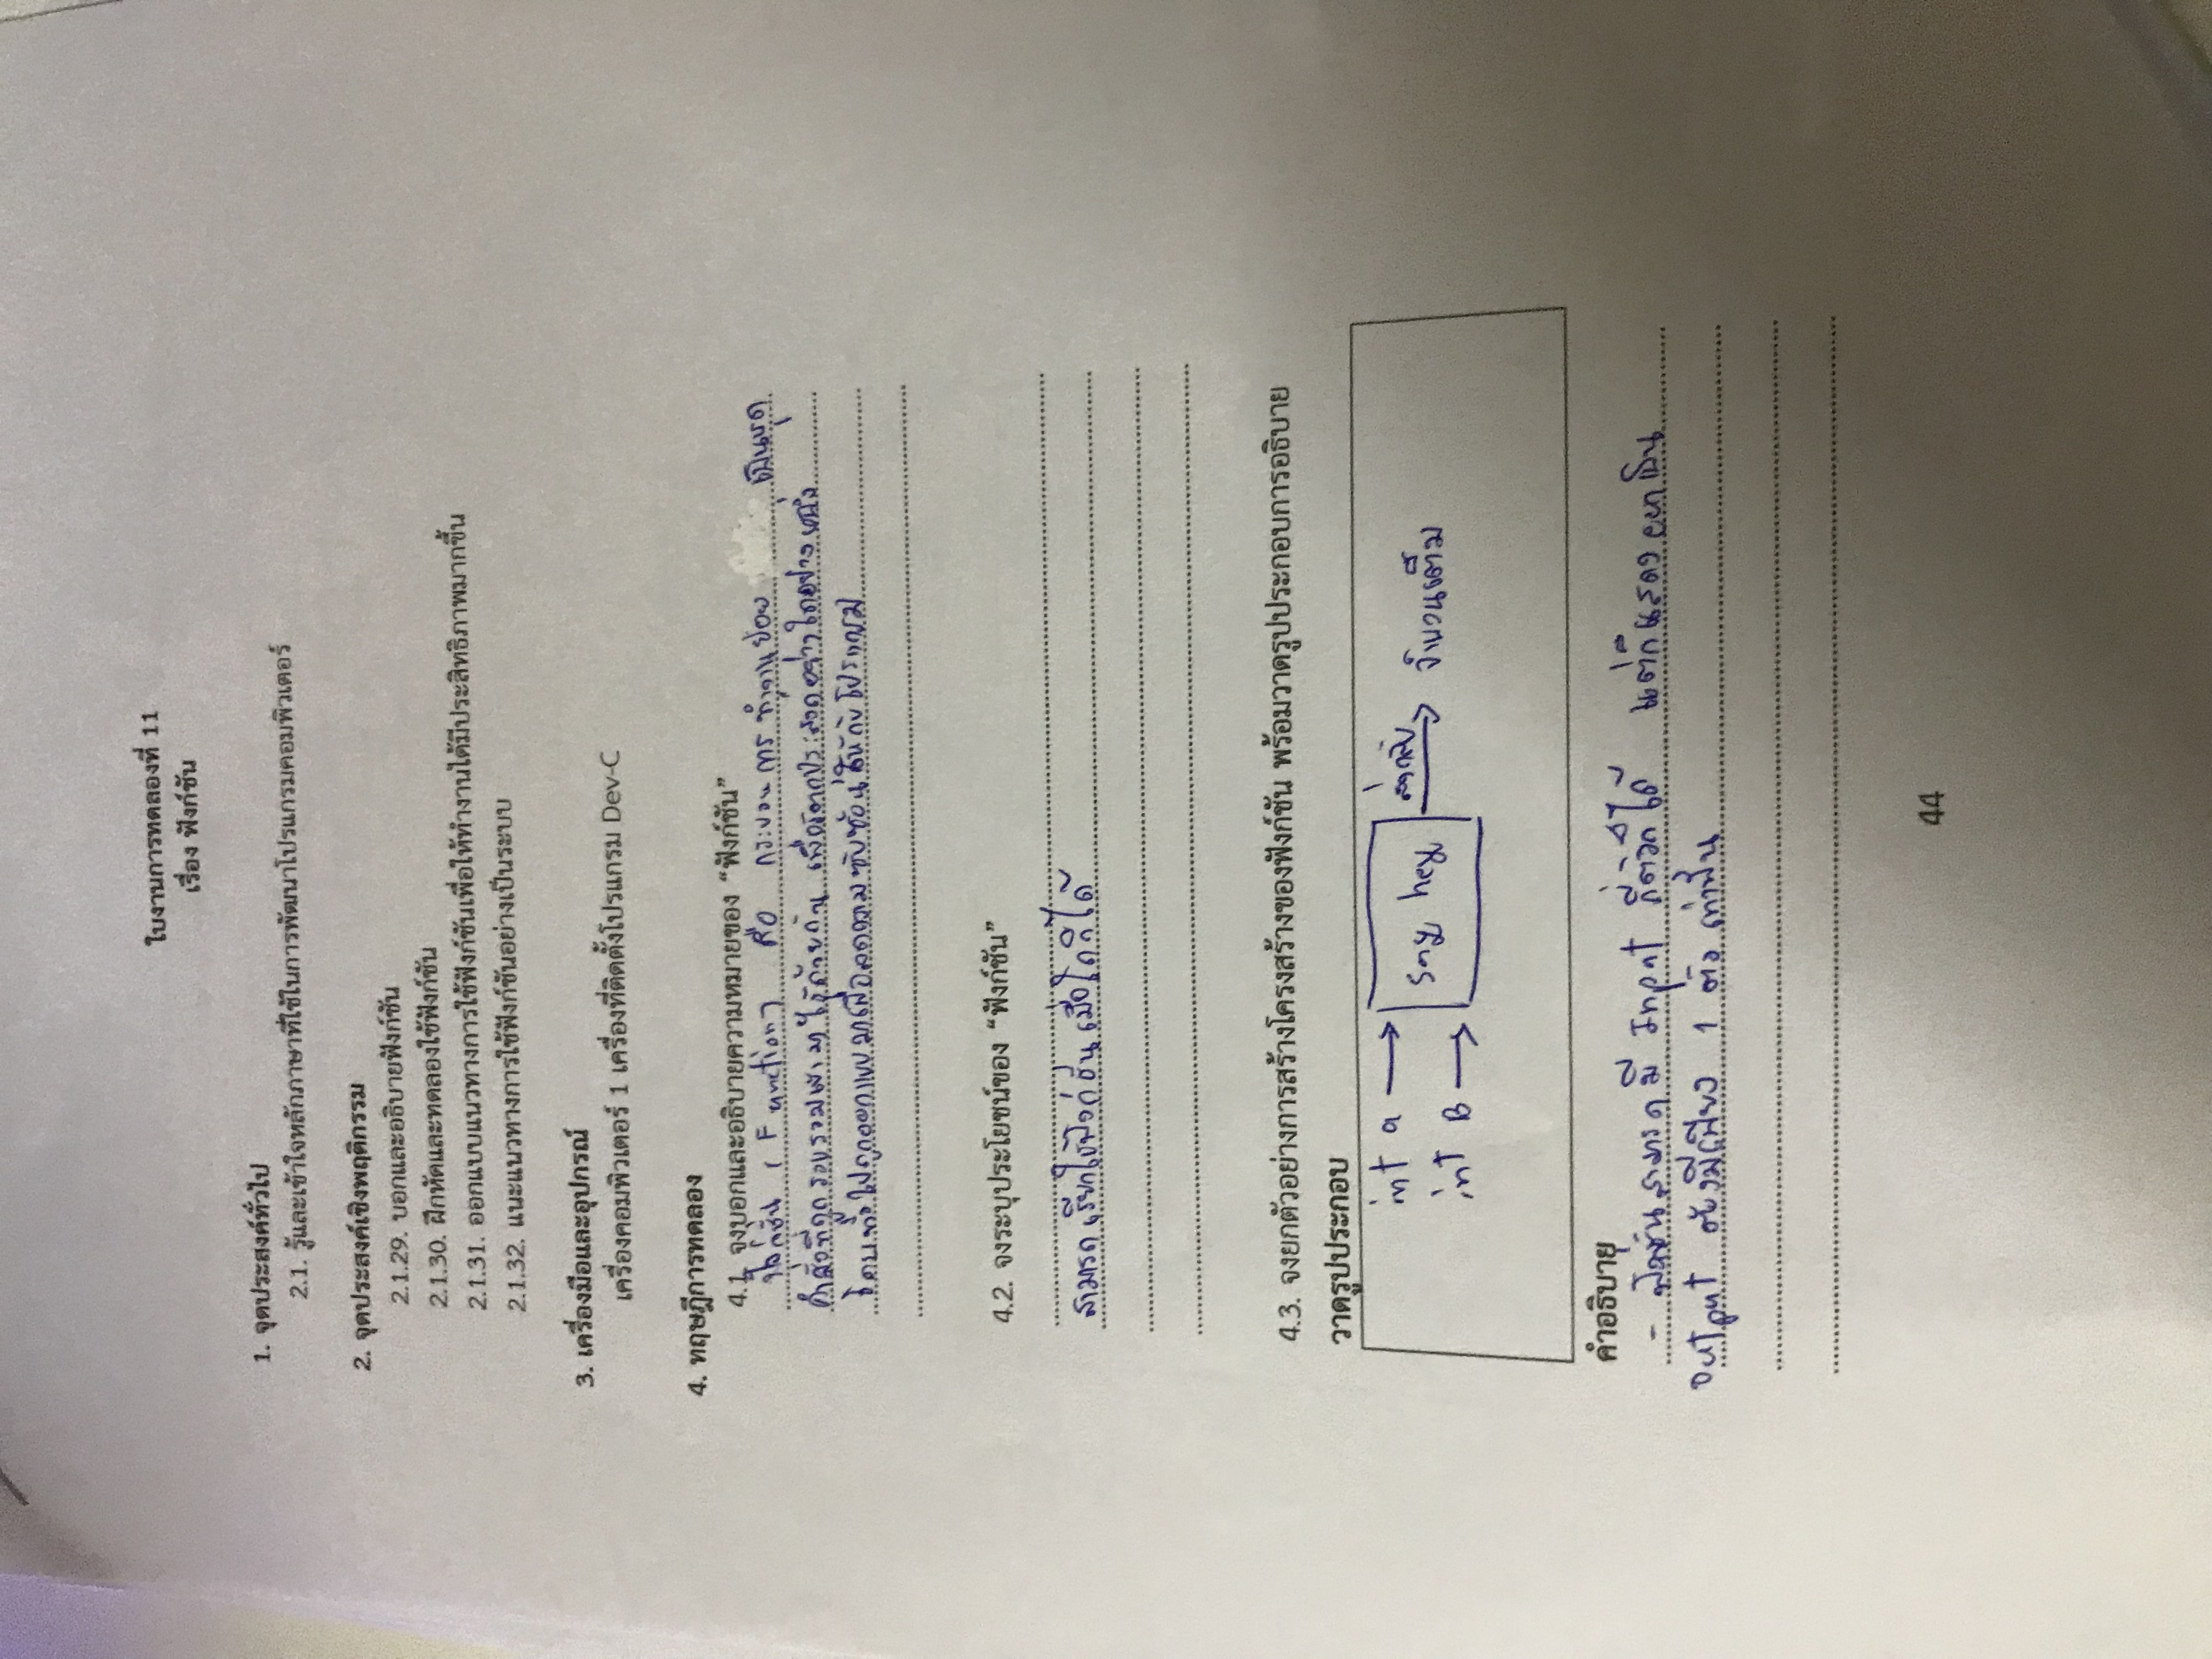 ใบงานการทดลองที่ 11
เรื่อง ฟังก์ชัน
1. จุดประสงค์ทั่วไป
2.1. รู้และเข้าใจหลักภาษาที่ใช้ในการพัฒนาโปรแกรมคอมพิวเตอร์
2. จุดประสงค์เชิงพฤติกรรม
2.1.29. บอกและอธิบายฟังก์ชัน
2.1.30. ฝึกหัดและทดลองใช้ฟังก์ชัน
2.1.31. ออกแบบแนวทางการใช้ฟังก์ชันเพื่อให้ทำงานได้มีประสิทธิภาพมากขึ้น
2.1.32. แนะแนวทางการใช้ฟังก์ชันอย่างเป็นระบบ
3. เครื่องมือและอุปกรณ์
เครื่องคอมพิวเตอร์ 1 เครื่องที่ติดตั้งโปรแกรม Dev-C
4. ทฤษฎีการทดลอง
4.1. จงบอกและอธิบายความหมายของ “ฟังก์ชัน”
ฟังก์ชั่น (Function) คือ กระบวนการทำงานย่อย เป็นชุด
คำสั่งที่ถูกรวบรวมเข้ามาไว้ด้วยกัน เพื่อวัตถุประสงค์อย่างใดอย่างหนึ่ง
โดยทั่วไปถูกออกแบบมาเพื่อลดความซับซ้อนให้กับโปรแกรม
4.2. จงระบุประโยชน์ของ “ฟังก์ชัน”
สามารถเรียกใช้ฟังก์ชั่นเมื่อใดก็ได้
4.3. จงยกตัวอย่างการสร้างโครงสร้างของฟังก์ชัน พร้อมวาดรูปประกอบการอธิบาย
วาดรูปประกอบ
int a → say hey ส่งกลับ → จำนวนเต็ม
int B →
คำอธิบาย
- ฟังชั่นสามารถมี Input กี่ตัวก็ได้ แต่ก็แสดงออกเป็น
output ต้องมีเพียง 1 ตัว เท่านั้น
44